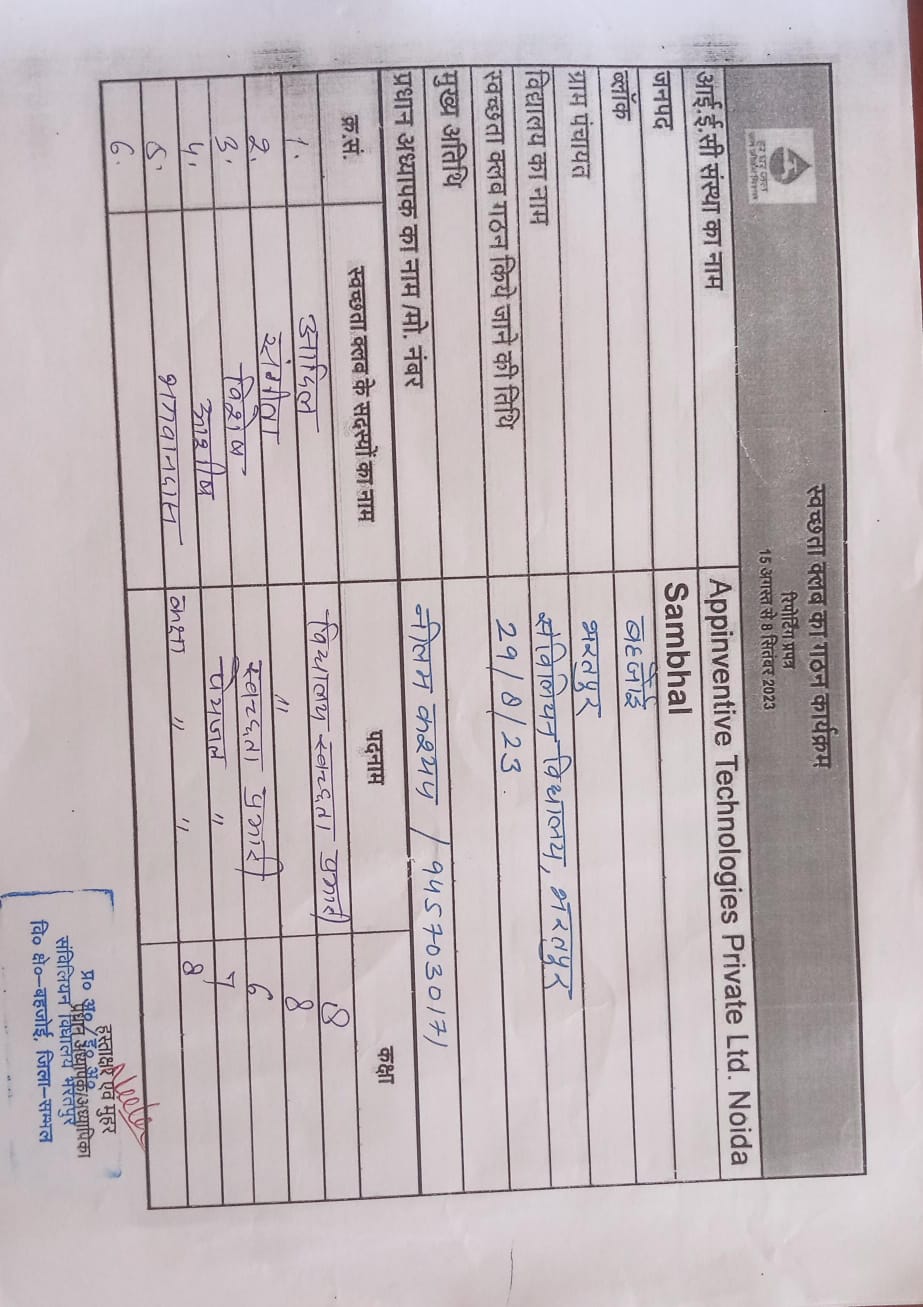 स्वच्छता क्लब का गठन कार्यक्रम
रिपोर्टिंग प्रपत्र
15 अगस्त से 8 सितंबर 2023
हर घर जल
जल जीवन मिशन
आई.ई.सी संस्था का नाम Appinventive Technologies Private Ltd. Noida
जनपद Sambhal
ब्लॉक बहजोई
ग्राम पंचायत भरतपुर
विद्यालय का नाम संविलियन विद्यालय, भरतपुर
स्वच्छता क्लब गठन किये जाने की तिथि 29/8/23
मुख्य अतिथि
प्रधान अध्यापक का नाम /मो. नंबर नीलम कश्यप / 9457030171
क्र.सं. स्वच्छता क्लब के सदस्यों का नाम पदनाम कक्षा
1. आदिल विद्यालय स्वच्छता प्रभारी 8
2. संगीता " 8
3. विशेष स्वच्छता प्रभारी 6
4. आशीष पेयजल " 7
5. भगवानदास कक्षा " " 8
6.
हस्ताक्षर एवं मुहर
प्रधान अध्यापक/अध्यापिका
प्र० अ०/इ० अ०
संविलियन विद्यालय भरतपुर
वि० क्षे०-बहजोई, जिला-सम्भल